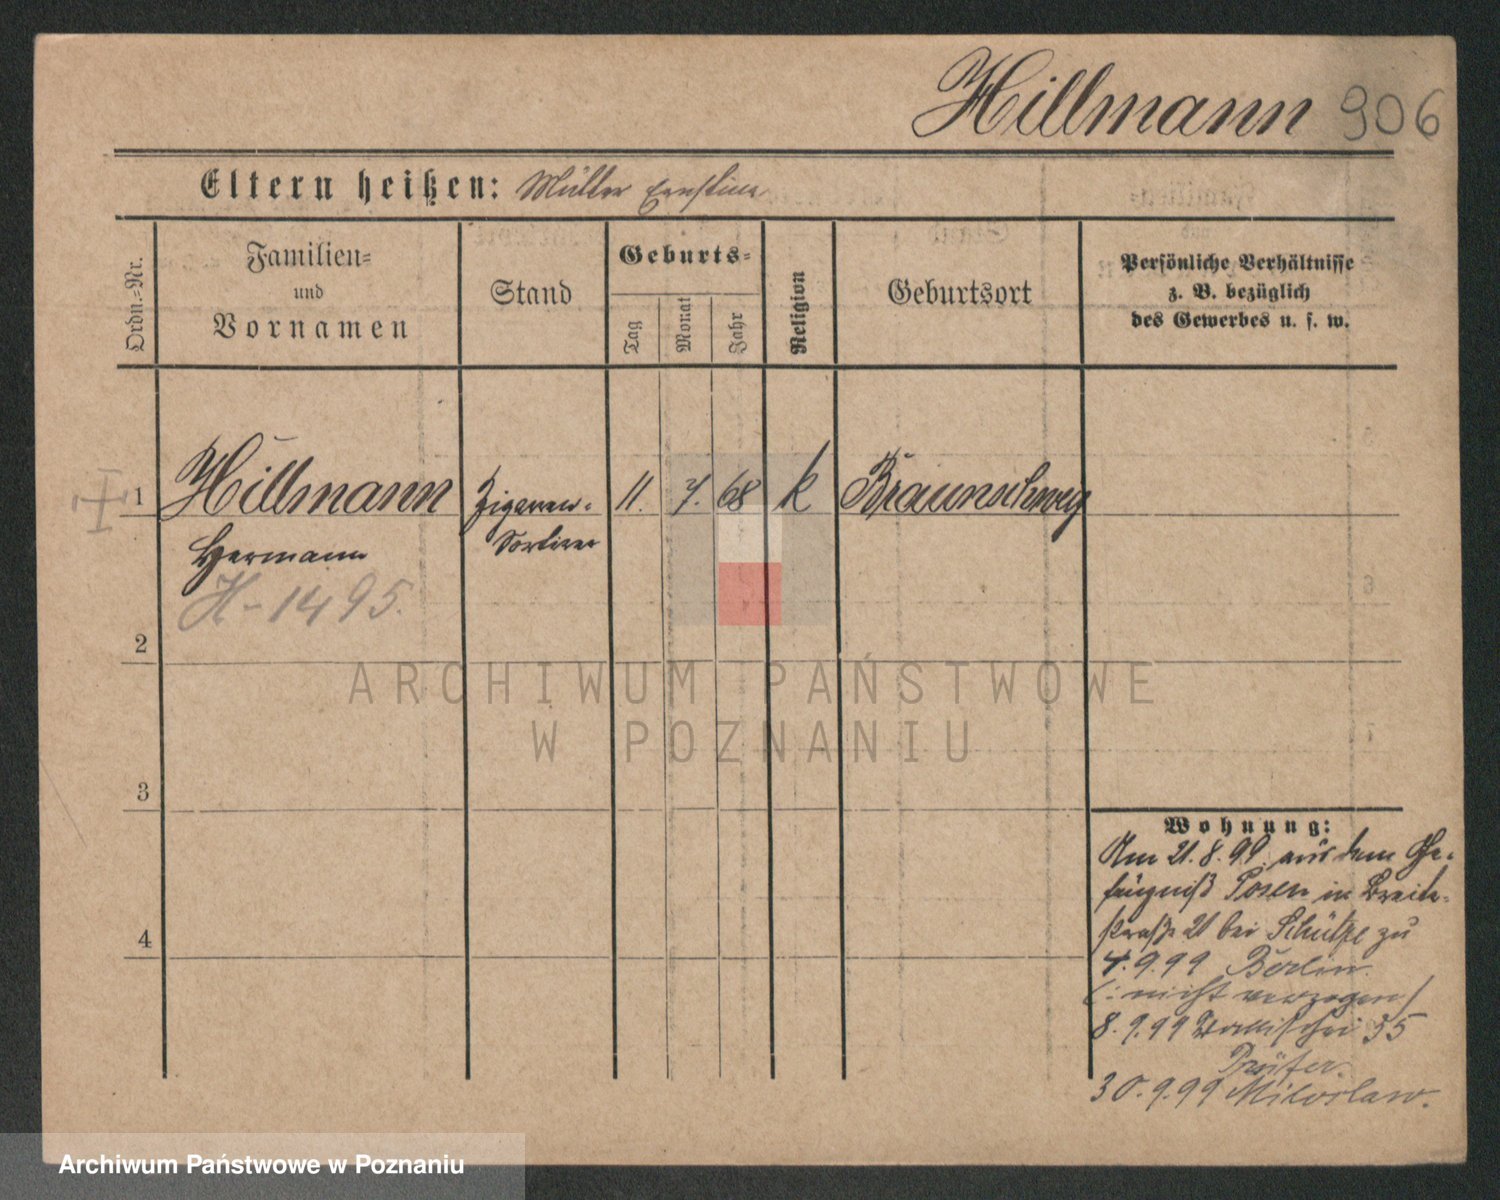 Hillmann 906
Eltern heißen: Müller Ernstine
Ordn.-Nr.
Familien-
und
Vornamen
Stand
Geburts-
Tag
Monat
Jahr
Religion
Geburtsort
Persönliche Verhältnisse
z. B. bezüglich
des Gewerbes u. s. w.
1 Hillmann Zigarren- 11. 7. 68 k Braunschweig
Hermann Sortierer
H-1495.
2
3
4
Wohnung:
Am 21.8.99 aus dem Ge-
fängniß Posen in Breite-
straße 21 bei Schütze zu
4.9.99 Berlin
(: nicht verzogen /
8.9.99 Wallischei 35
Prüfer.
30.9.99 Miloslaw.
ARCHIWUM PAŃSTWOWE
W POZNANIU
Archiwum Państwowe w Poznaniu